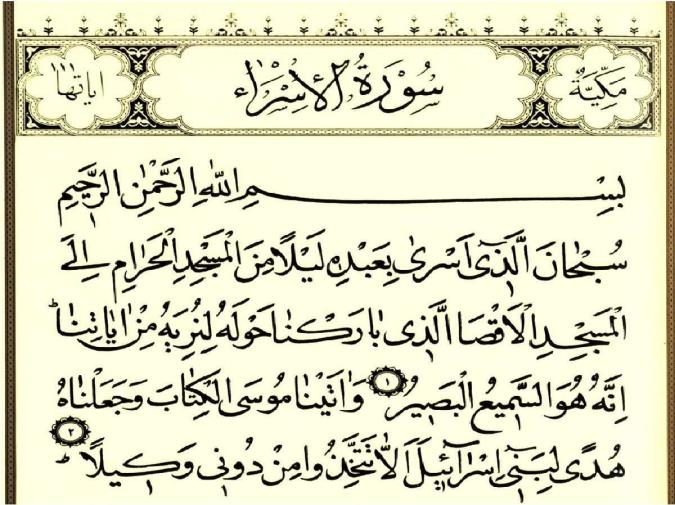 مَكِّيَّةٌ سُورَةُ الْاِسْرَاءِ اٰيَاتُهَا ١١١
بِسْمِ اللّٰهِ الرَّحْمٰنِ الرَّحٖيمِ
سُبْحَانَ الَّذٖٓى اَسْرٰى بِعَبْدِهٖ لَيْلًا مِنَ الْمَسْجِدِ الْحَرَامِ اِلَى
الْمَسْجِدِ الْاَقْصَا الَّذٖى بَارَكْنَا حَوْلَهُ لِنُرِيَهُ مِنْ اٰيَاتِنَاؕ
اِنَّهُ هُوَ السَّمٖيعُ الْبَصٖيرُ ١ وَاٰتَيْنَا مُوسَى الْكِتَابَ وَجَعَلْنَاهُ
هُدًى لِبَنٖٓى اِسْرَٓائٖلَ اَلَّا تَتَّخِذُوا مِنْ دُونٖى وَكٖيلًاؕ ٢